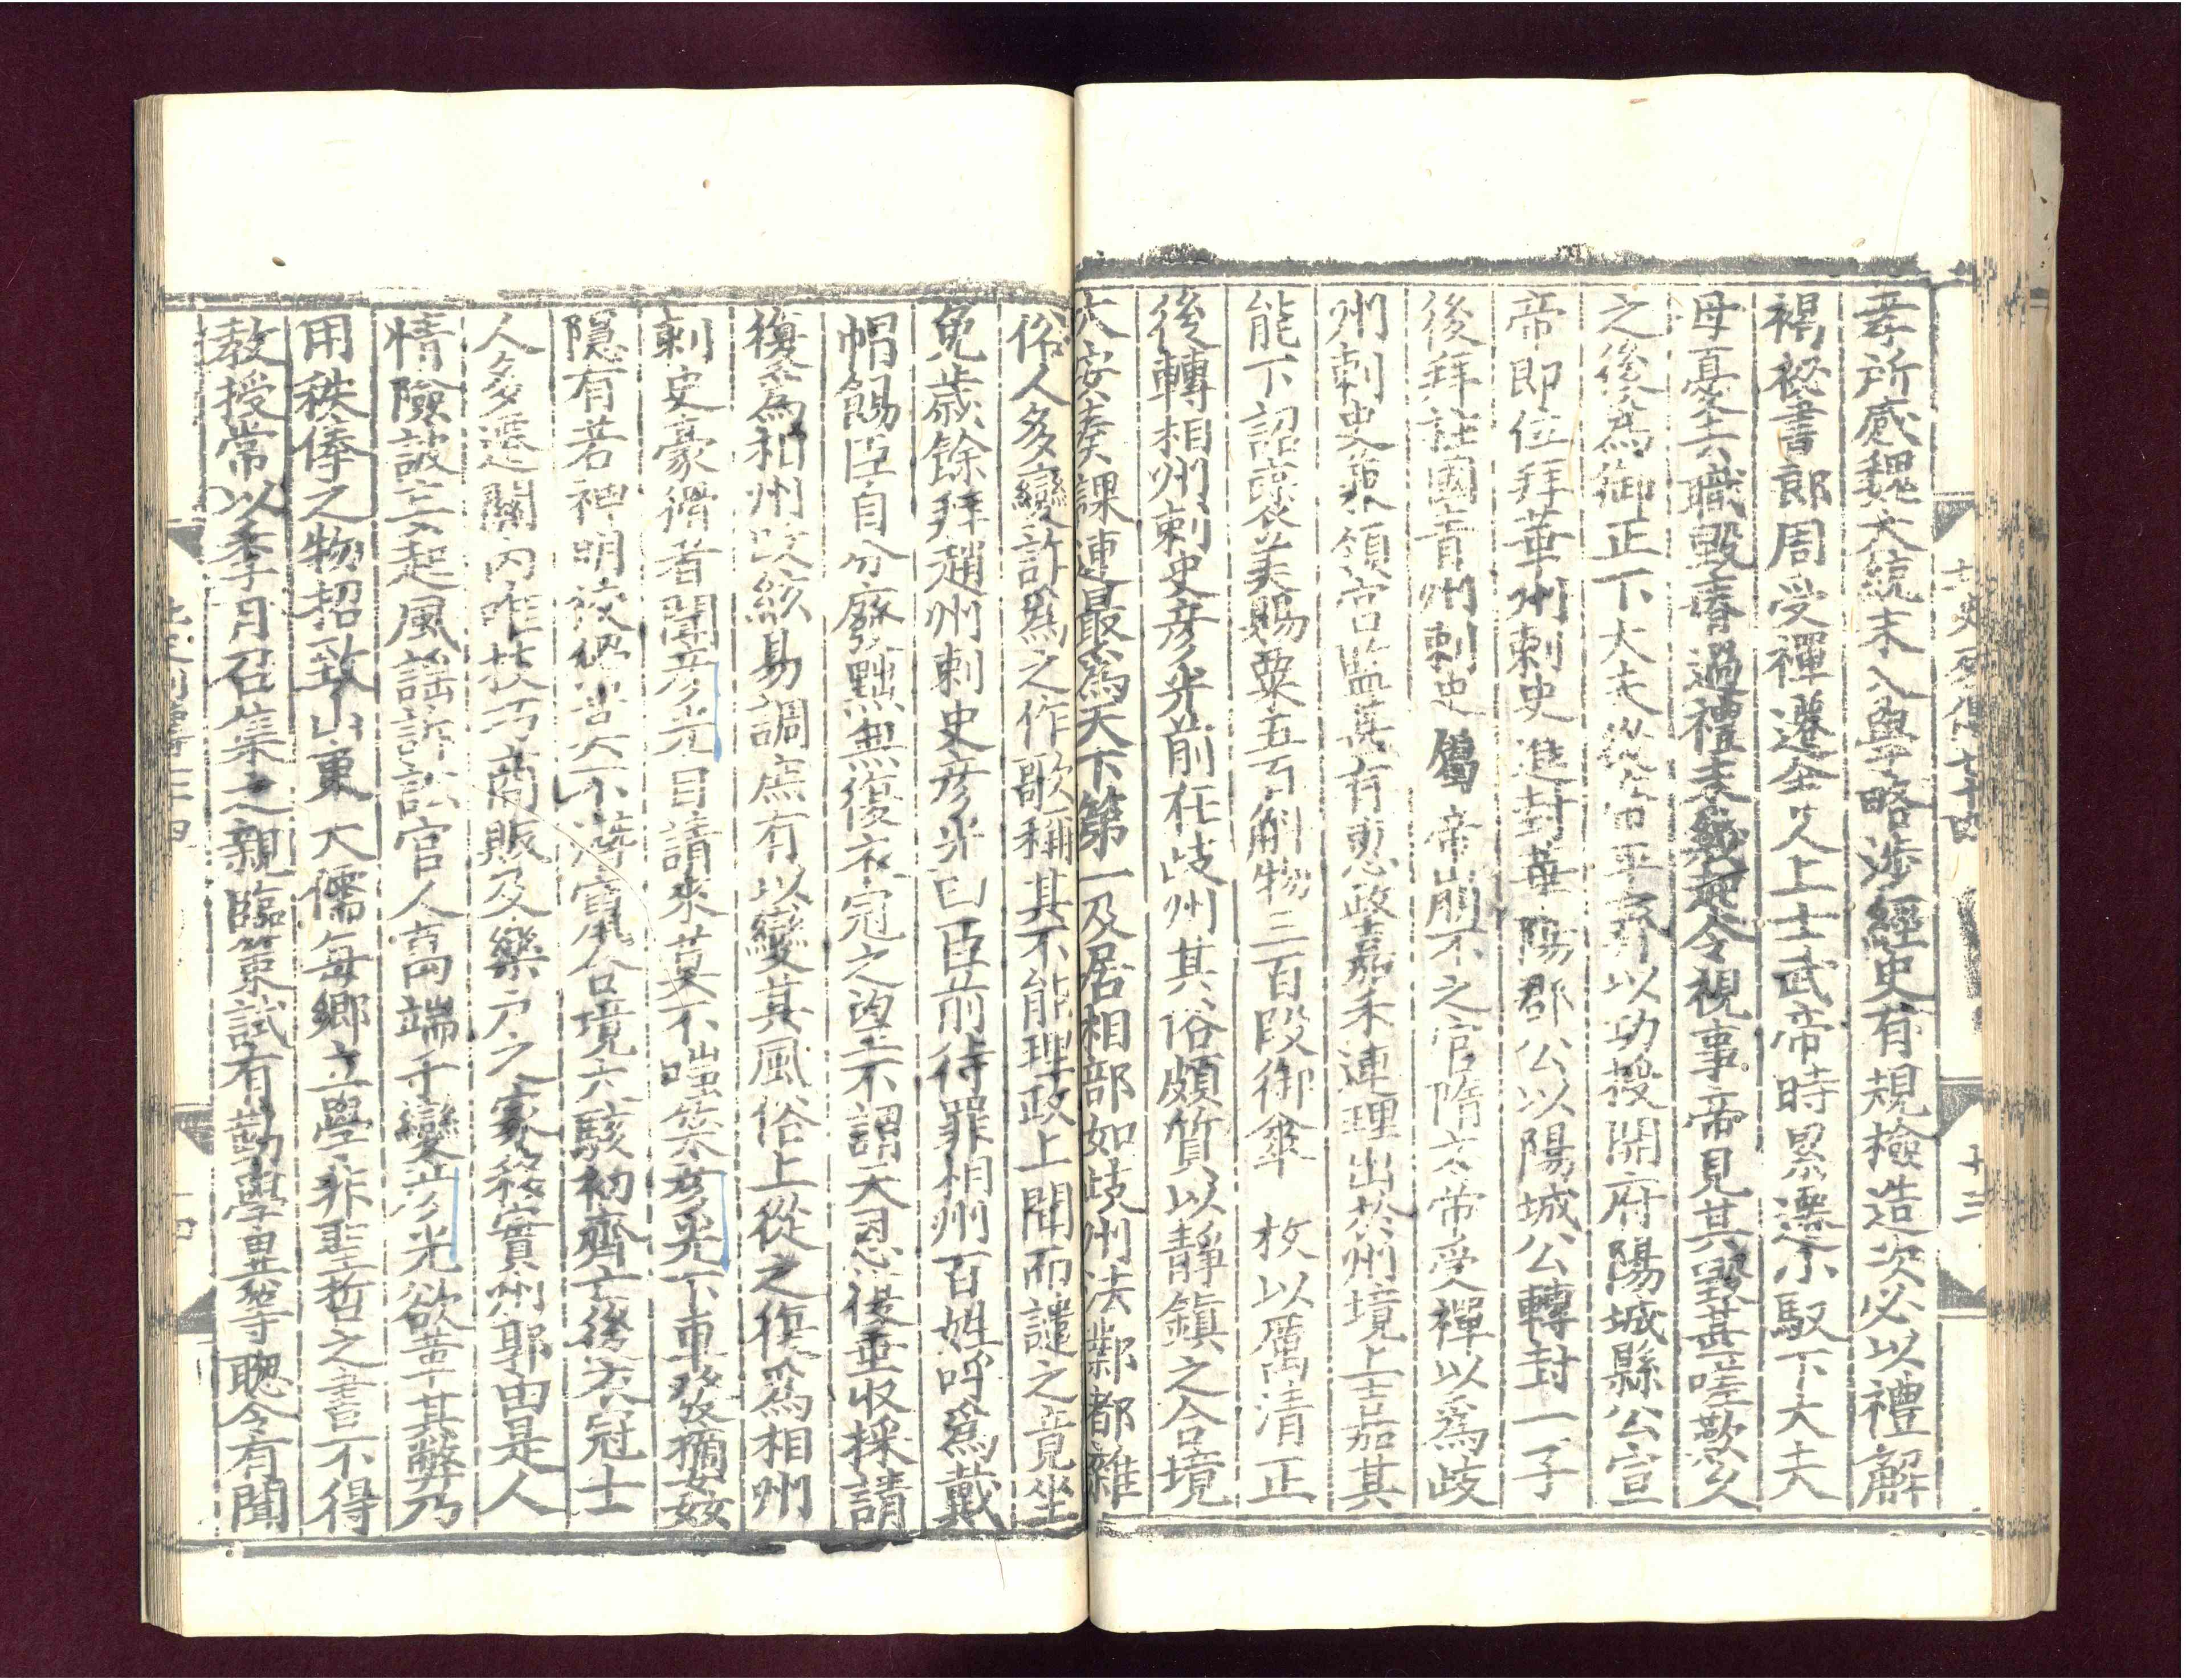 北史列傳七十四 十三
孝所感魏大統末入學略涉經史有規檢造次必以禮解
褐秘書郎周受禪遷舍人上士武帝時累遷小馭下大夫
母憂去職毀瘠過禮未幾起令視事帝見其毀甚嗟歎久
之後爲御正下大夫從帝平齊以功授開府陽城縣公宣
帝即位拜華州刺史進封華陽郡公以陽城公轉封一子
後拜柱國青州刺史屬帝崩不之官隋文帝受禪以爲歧
州刺史兼領宮監甚有惠政嘉禾連理出於州境上嘉其
能下詔褒美賜粟五百斛物三百段御傘 枚以厲清正
後轉相州刺史彥光前在歧州其俗頗質以靜鎮之合境
大安奏課連最爲天下第一及居相部如歧州法鄴都雜
俗人多變詐爲之作歌稱其不能理政上聞而譴之竟坐
免歲餘拜趙州刺史彥光曰臣前待罪相州百姓呼爲戴
帽餳臣自分廢黜無復衣冠之望不謂天恩復垂收採請
復爲相州改絃易調庶有以變其風俗上從之復爲相州
刺史豪猾者聞彥光自請來莫不嗤笑彥光下車發擿姦
隱有若神明狡猾 不潛竄合境大駭初齊亡後衣冠士
人多遷關內唯技巧商販及樂戶之家移實州郭由是人
情險詖妄起風謠訴訟官人萬端千變彥光欲革其弊乃
用秩俸之物招致山東大儒每鄉立學非聖哲之書不得
教授常以季月召集之親臨策試有勤學異等聰令有聞